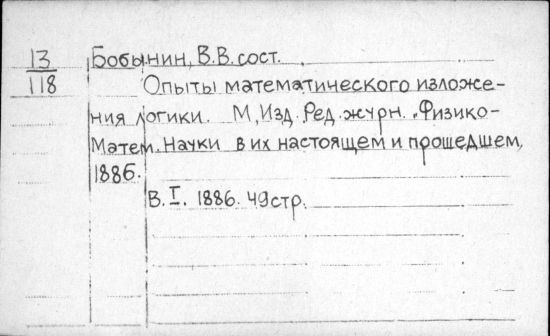 13
118
Бобынин, В.В. сост.
Опыты математического изложе-
ния логики. М, Изд. Ред. журн. „Физико-
Матем. Науки в их настоящем и прошедшем,
1886.
В. I. 1886. 49 стр.